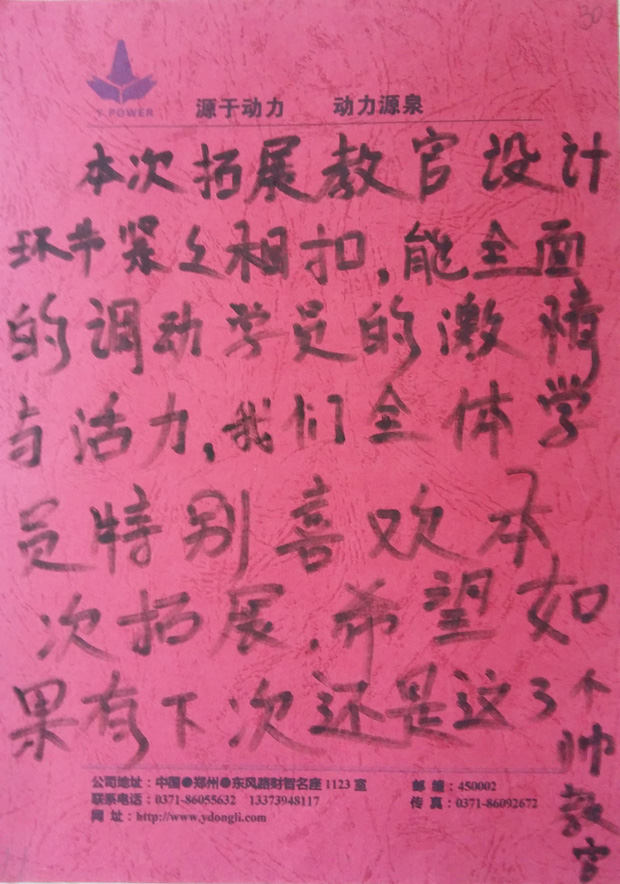 30
Y POWER
源于动力 动力源泉
本次拓展教官设计
环节紧々相扣,能全面
的调动学员的激情
与活力,我们全体学
员特别喜欢本
次拓展,希望如
果有下次还是这3个
帅教官
公司地址:中国●郑州●东风路财智名座1123室 邮 编:450002
联系电话:0371-86055632 13373948117 传 真:0371-86092672
网 址:http://www.ydongli.com